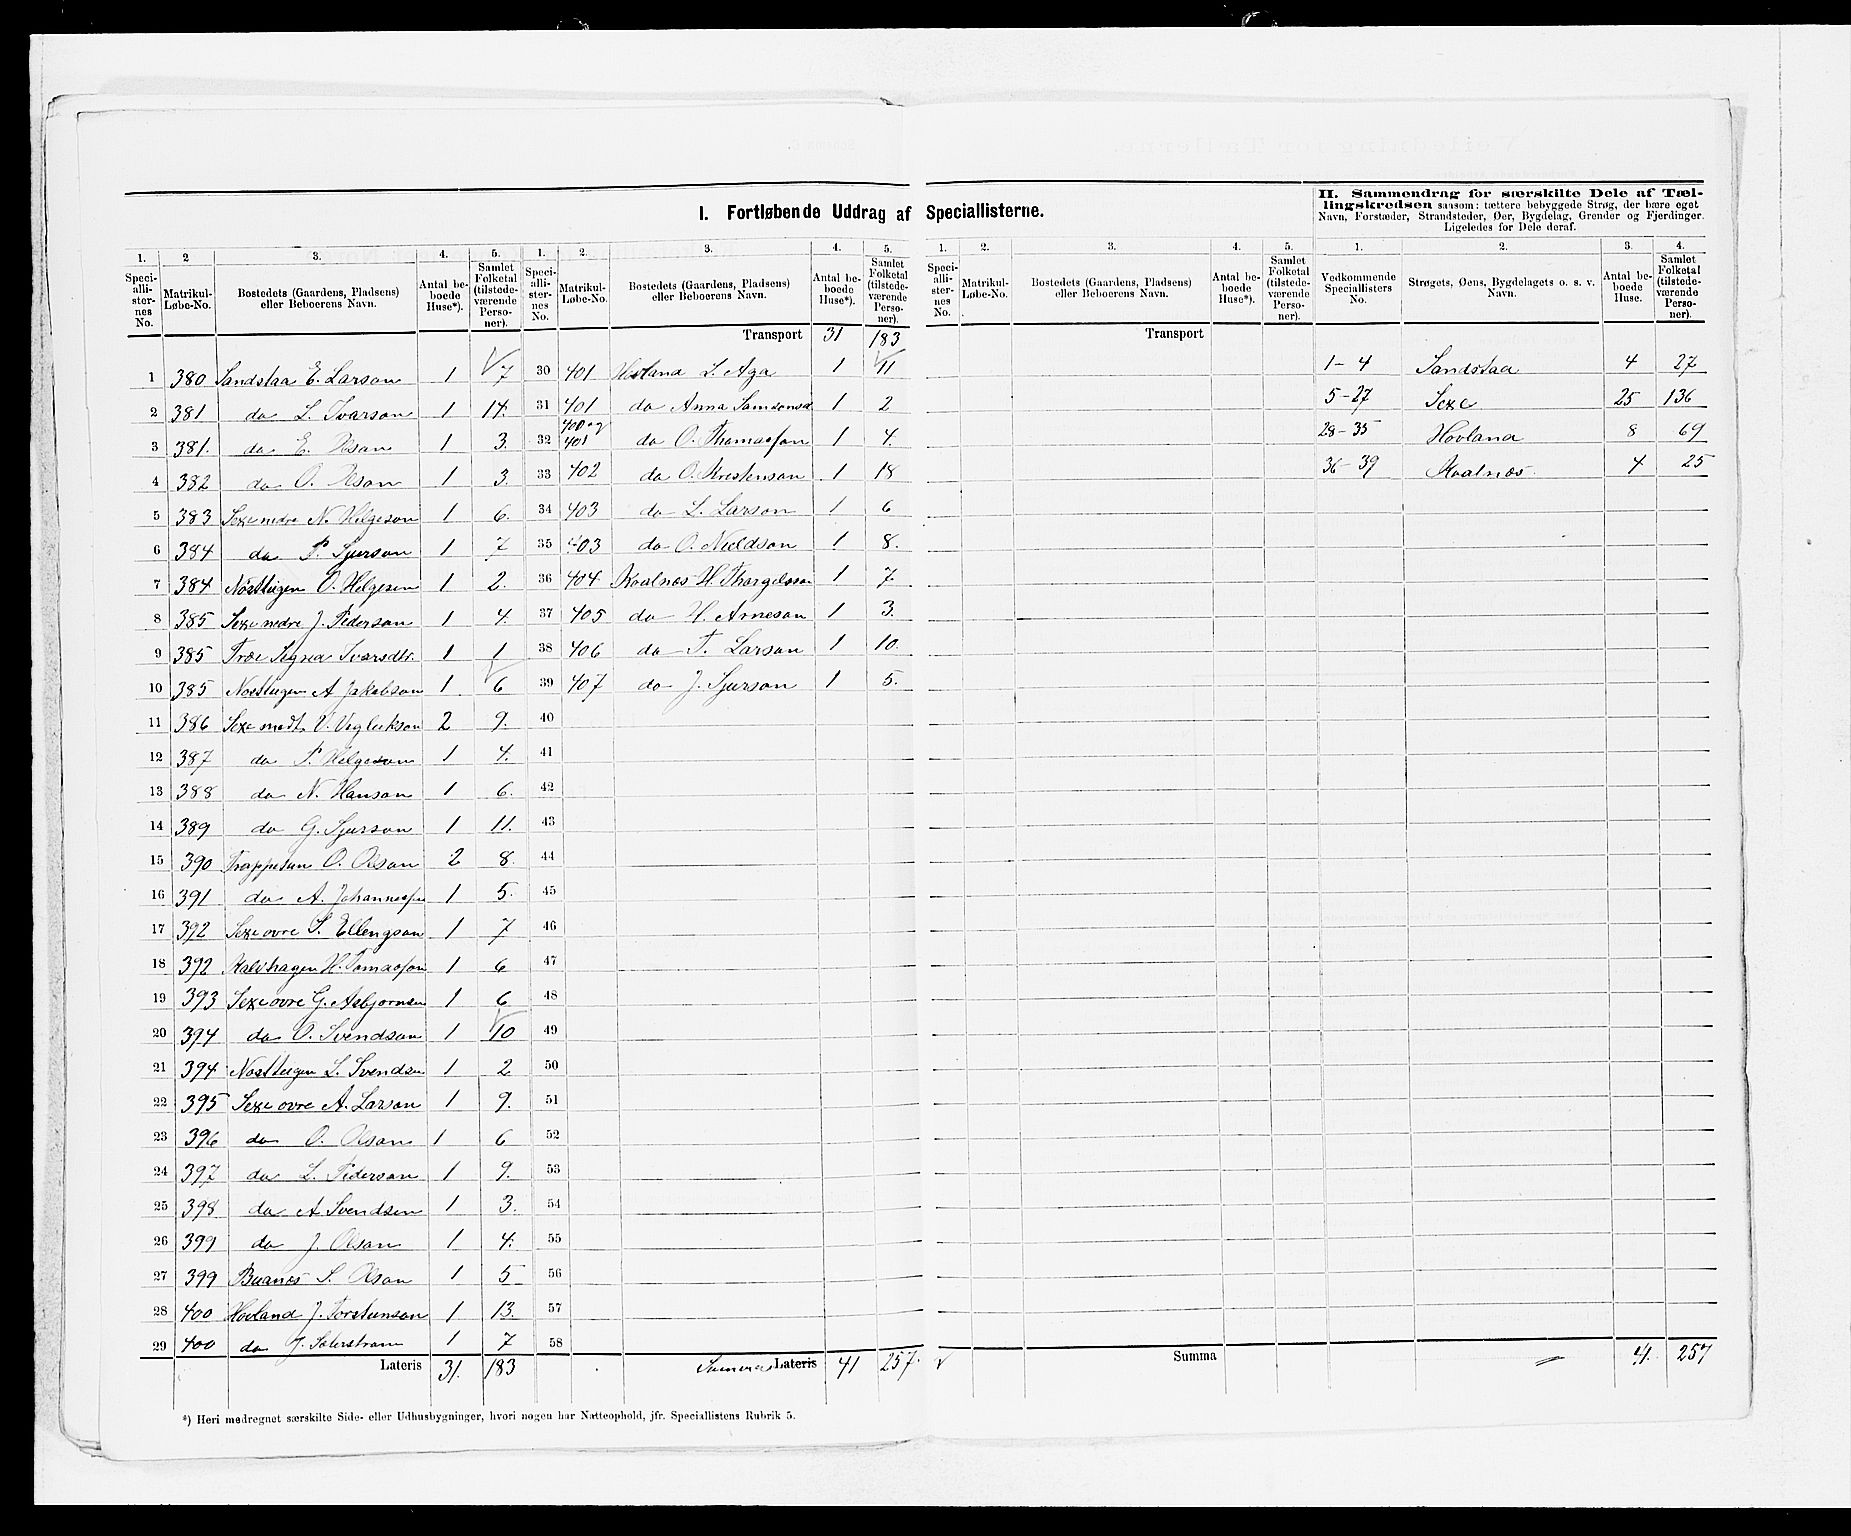 I. Fortløbende Uddrag af Speciallisterne.
II. Sammendrag for særskilte Dele af Tæl-
lingskredsen saasom: tættere bebyggede Strøg, der bære eget
Navn, Forstæder, Strandsteder, Øer, Bygdelag, Grender og Fjerdinger.
Ligeledes for Dele deraf.
1. 2 3. 4. 5. 1. 2. 3. 4. 5. 1. 2. 3. 4. 5. 1. 2. 3. 4.
Speci-alli-ster-nes No. Matrikul-Løbe-No. Bostedets (Gaardens, Pladsens) eller Beboerens Navn. Antal be-boede Huse*). Samlet Folketal (tilstede-værende Perso-ner).
Speci-alli-ster-nes No. Matrikul-Løbe-No. Bostedets (Gaardens, Pladsens) eller Beboerens Navn. Antal be-boede Huse*). Samlet Folketal (tilstede-værende Perso-ner).
Speci-alli-ster-nes No. Matrikul-Løbe-No. Bostedets (Gaardens, Pladsens) eller Beboerens Navn. Antal be-boede Huse*). Samlet Folketal (tilstede-værende Perso-ner).
Vedkommende Speciallisters No. Strøgets, Øens, Bygdelagets o. s. v. Navn. Antal be-boede Huse. Samlet Folketal (tilstede-værende Perso-ner).
1 380 Sandstaa E. Larson 1 7
2 381 do L. Ivarson 1 14.
3 381. do E. Olson 1 3.
4 382 do O. Olson 1 3.
5 383 Sexe nedre N. Helgeson 1 6.
6 384 do P. Sjurson 1 7
7 384 Nostteigen O. Helgesen 1 2.
8 385 Sexe nedre J. Pederson 1 4.
9 385 Træe Signa Ivarsdtr. 1 1
10 385 Nostteigen A Jakobson 1 6
11 386 Sexe medt. V. Vigleikson 2 9.
12 387 do P. Helgeson 1 4.
13 388 do N. Hanson 1 6.
14 389 do G. Sjurson 1 11.
15 390 Trappetun O. Olson 2 8.
16 391 do A. Johannesson 1 5.
17 392 Sexe ovre S. Ellengson 1 7
18 392 Kalvhagen H. Tomasson 1 6
19 393 Sexe ovre G. Asbjornsen 1 6
20 394 do O. Svendson 1 10
21 394 Nostteigen L. Svendsen 1 2
22 395 Sexe ovre A. Larson 1 9.
23 396 do O. Olson 1 6
24 397 do L. Pederson 1 9.
25 398 do A Svendsen 1 3.
26 399 do J. Olson 1 4.
27 399 Buanes S. Olson 1 5
28 400 Hovland J. Torsteinson 1 13.
29 400 do J. 1 7
Lateris 31. 183
Transport 31 183
30 401 Hovland L. Aga 1 11
31 401 do Anna Samsonsd 1 2
32 400 og 401 do O. Thomasson 1 4.
33 402 do O. Krestenson 1 18
34 403 do L. Larson 1 6
35 403 do O. Nieldson 1 8.
36 404 Kvalnes H. Thorgelsson 1 7.
37 405 do H. Arneson 1 3.
38 406 do T. Larson 1 10.
39 407 do J. Sjurson 1 5.
40
41
42
43
44
45
46
47
48
49
50
51
52
53
54
55
56
57
58
Summa Lateris 41 257.
Transport
Summa
1-4 Sandstaa 4 27
5-27 Sexe 25 136
28-35 Hovland 8 69
36-39 Kvalnes. 4 25
41. 257
*) Heri medregnet særskilte Side- eller Udhusbygninger, hvori nogen har Natteophold, jfr. Speciallistens Rubrik 5.